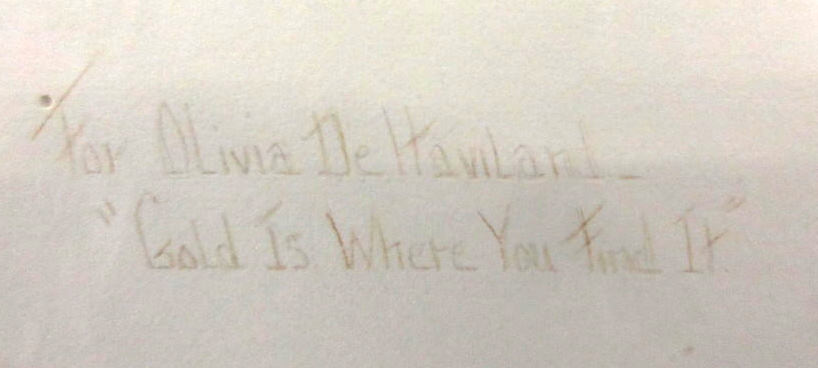 For Olivia De Haviland -
"Gold Is Where You Find It"